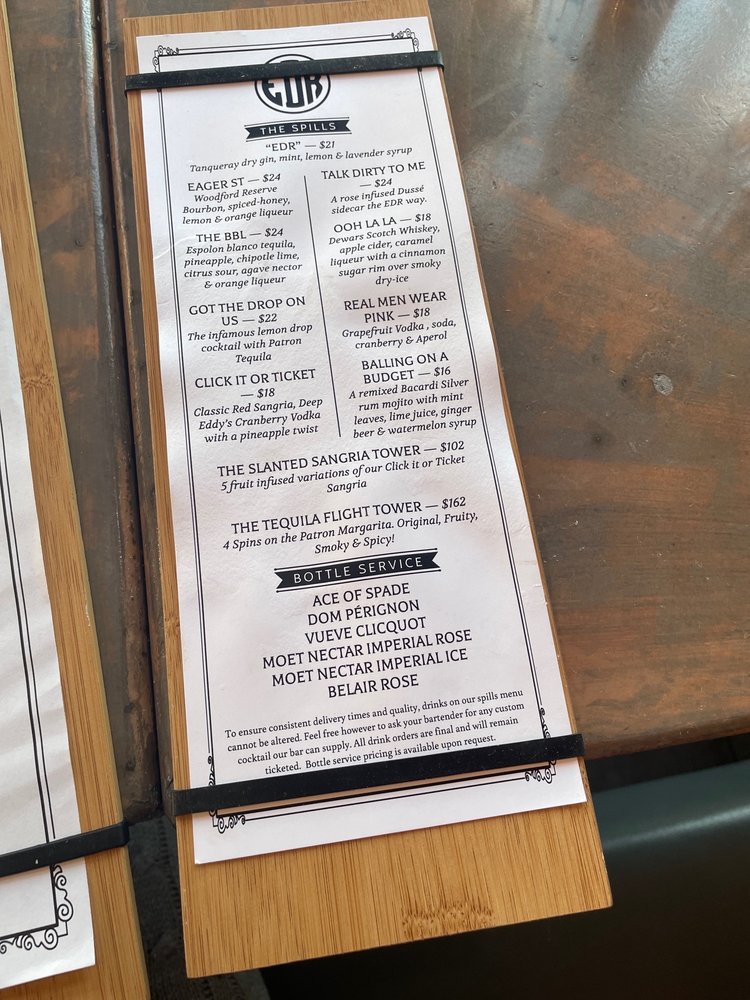 EDR
THE SPILLS
"EDR" — $21
Tanqueray dry gin, mint, lemon & lavender syrup
EAGER ST — $24
Woodford Reserve
Bourbon, spiced-honey,
lemon & orange liqueur
THE BBL — $24
Espolon blanco tequila,
pineapple, chipotle lime,
citrus sour, agave nectar
& orange liqueur
GOT THE DROP ON
US — $22
The infamous lemon drop
cocktail with Patron
Tequila
CLICK IT OR TICKET
— $18
Classic Red Sangria, Deep
Eddy's Cranberry Vodka
with a pineapple twist
TALK DIRTY TO ME
— $24
A rose infused Dussé
sidecar the EDR way.
OOH LA LA — $18
Dewars Scotch Whiskey,
apple cider, caramel
liqueur with a cinnamon
sugar rim over smoky
dry-ice
REAL MEN WEAR
PINK — $18
Grapefruit Vodka , soda,
cranberry & Aperol
BALLING ON A
BUDGET — $16
A remixed Bacardi Silver
rum mojito with mint
leaves, lime juice, ginger
beer & watermelon syrup
THE SLANTED SANGRIA TOWER — $102
5 fruit infused variations of our Click it or Ticket
Sangria
THE TEQUILA FLIGHT TOWER — $162
4 Spins on the Patron Margarita. Original, Fruity,
Smoky & Spicy!
BOTTLE SERVICE
ACE OF SPADE
DOM PÉRIGNON
VUEVE CLICQUOT
MOET NECTAR IMPERIAL ROSE
MOET NECTAR IMPERIAL ICE
BELAIR ROSE
To ensure consistent delivery times and quality, drinks on our spills menu
cannot be altered. Feel free however to ask your bartender for any custom
cocktail our bar can supply. All drink orders are final and will remain
ticketed. Bottle service pricing is available upon request.